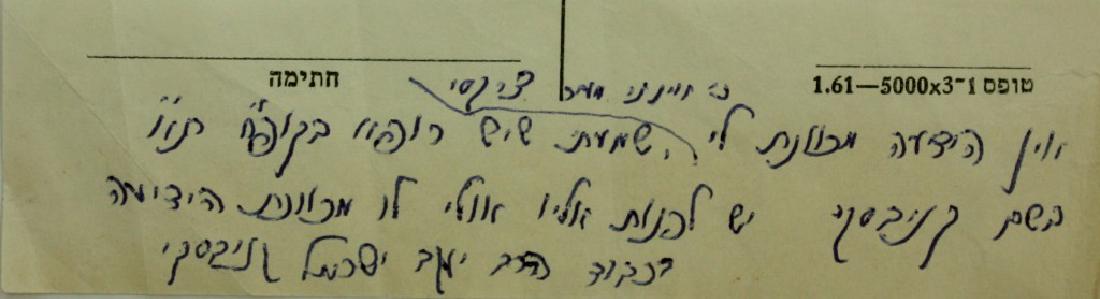 חתימה
טופס 1־3x5000—1.61
כי אינני מכיר צרקסי
אין הידיעה מכוונת לי, שמעתי שיש רופא בקופ"ח ת"א
בשם קניבסקי יש לפנות אליו אולי לו מכוונת הידיעה
בכבוד הרב יעקב ישראל קניבסקי